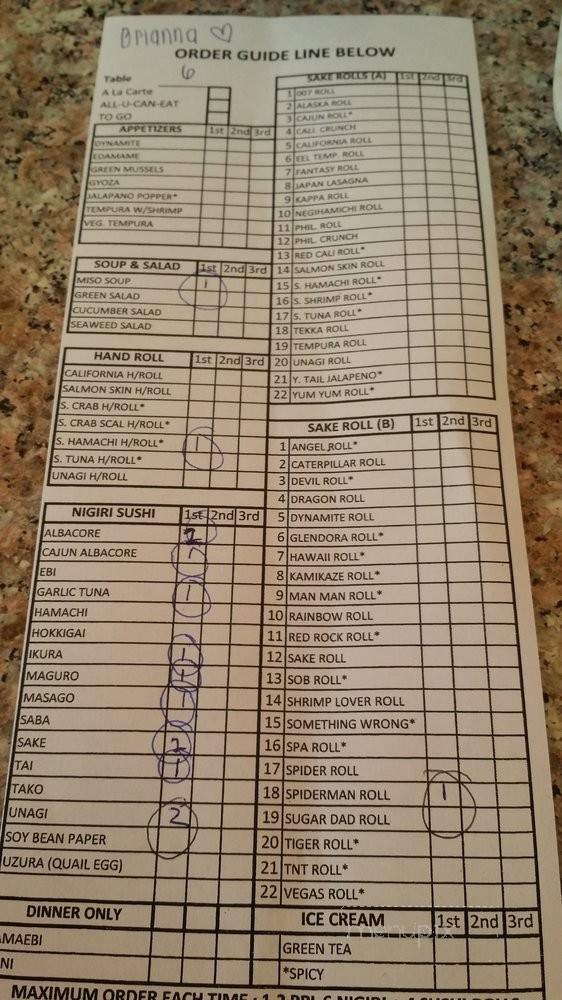 Brianna ♡
ORDER GUIDE LINE BELOW
Table 6
A La Carte
ALL-U-CAN-EAT
TO GO
APPETIZERS 1st 2nd 3rd
DYNAMITE
EDAMAME
GREEN MUSSELS
GYOZA
JALAPANO POPPER*
TEMPURA W/SHRIMP
VEG. TEMPURA
SOUP & SALAD 1st 2nd 3rd
MISO SOUP 1
GREEN SALAD
CUCUMBER SALAD
SEAWEED SALAD
HAND ROLL 1st 2nd 3rd
CALIFORNIA H/ROLL
SALMON SKIN H/ROLL
S. CRAB H/ROLL*
S. CRAB SCAL H/ROLL*
S. HAMACHI H/ROLL* 1
S. TUNA H/ROLL*
UNAGI H/ROLL
NIGIRI SUSHI 1st 2nd 3rd
ALBACORE 2
CAJUN ALBACORE
EBI
GARLIC TUNA 1
HAMACHI
HOKKIGAI
IKURA 1
MAGURO
MASAGO 1
SABA
SAKE 2
TAI 1
TAKO
UNAGI 2
SOY BEAN PAPER
UZURA (QUAIL EGG)
DINNER ONLY
MAEBI
NI
SAKE ROLLS (A) 1st 2nd 3rd
1 007 ROLL
2 ALASKA ROLL
3 CAJUN ROLL*
4 CALI. CRUNCH
5 CALIFORNIA ROLL
6 EEL TEMP. ROLL
7 FANTASY ROLL
8 JAPAN LASAGNA
9 KAPPA ROLL
10 NEGIHAMICHI ROLL
11 PHIL. ROLL
12 PHIL. CRUNCH
13 RED CALI ROLL*
14 SALMON SKIN ROLL
15 S. HAMACHI ROLL*
16 S. SHRIMP ROLL*
17 S. TUNA ROLL*
18 TEKKA ROLL
19 TEMPURA ROLL
20 UNAGI ROLL
21 Y. TAIL JALAPENO*
22 YUM YUM ROLL*
SAKE ROLL (B) 1st 2nd 3rd
1 ANGEL ROLL*
2 CATERPILLAR ROLL
3 DEVIL ROLL*
4 DRAGON ROLL
5 DYNAMITE ROLL
6 GLENDORA ROLL*
7 HAWAII ROLL*
8 KAMIKAZE ROLL*
9 MAN MAN ROLL*
10 RAINBOW ROLL
11 RED ROCK ROLL*
12 SAKE ROLL
13 SOB ROLL*
14 SHRIMP LOVER ROLL
15 SOMETHING WRONG*
16 SPA ROLL*
17 SPIDER ROLL
18 SPIDERMAN ROLL 1
19 SUGAR DAD ROLL
20 TIGER ROLL*
21 TNT ROLL*
22 VEGAS ROLL*
ICE CREAM 1st 2nd 3rd
GREEN TEA
*SPICY
menupix
MAXIMUM ORDER EACH TIME : 1-2 PPL 6 NIGIRI